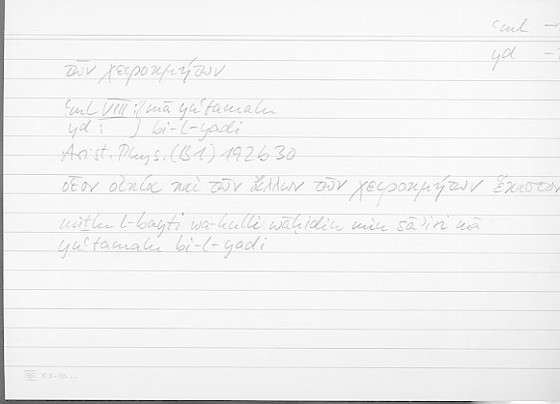 ʿml
yd
τῶν χειροκμήτων
ʿml VIII : } mā yuʿtamalu
yd : } bi-l-yadi
Arist. Phys. (B 1) 192b30
οἷον οἰκία καὶ τῶν ἄλλων τῶν χειροκμήτων ἕκαστον
miṯlu l-bayti wa-kulli wāḥidin min sāʾiri mā
yuʿtamalu bi-l-yadi